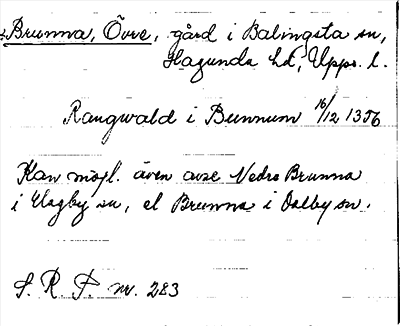 Brunna, Övre, gård i Balingsta sn,
Hagunda hd, Upps. l.
Rangwald i Bunnum 16/12 1356
Kan möjl. även avse Nedre Brunna
i Hagby sn, el Brunna i Dalby sn.
S. R. P. nr. 283